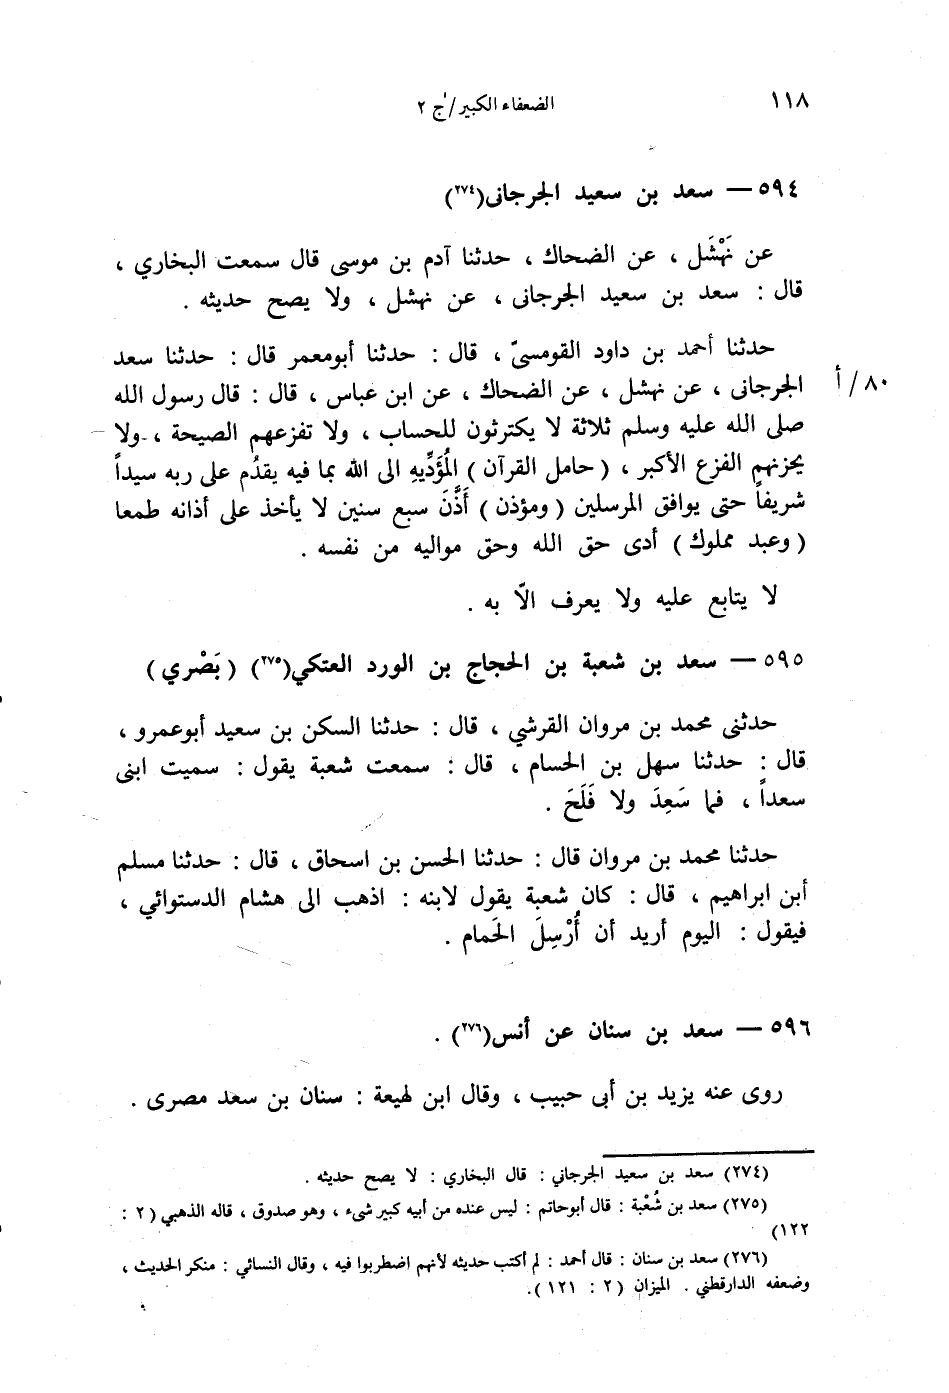 ١١٨
الضعفاء الكبير/ج ٢
٥٩٤ — سعد بن سعيد الجرجانى(٢٧٤)
عن نَهْشَل ، عن الضحاك ، حدثنا آدم بن موسى قال سمعت البخاري ،
قال : سعد بن سعيد الجرجانى ، عن نهشل ، ولا يصح حديثه .
حدثنا أحمد بن داود القومسىّ ، قال : حدثنا أبومعمر قال : حدثنا سعد
٨٠/أ
الجرجانى ، عن نهشل ، عن الضحاك ، عن ابن عباس ، قال : قال رسول الله
صلى الله عليه وسلم ثلاثة لا يكترثون للحساب ، ولا تفزعهم الصيحة ، ولا
يحزنهم الفزع الأكبر ، (حامل القرآن) المُؤدِّيهِ الى الله بما فيه يقدُم على ربه سيداً
شريفاً حتى يوافق المرسلين (ومؤذن) أَذَّنَ سبع سنين لا يأخذ على أذانه طمعا
(وعبد مملوك) أدى حق الله وحق مواليه من نفسه .
لا يتابع عليه ولا يعرف الاّ به .
٥٩٥ — سعد بن شعبة بن الحجاج بن الورد العتكي(٢٧٥) (بَصْري)
حدثنى محمد بن مروان القرشي ، قال : حدثنا السكن بن سعيد أبوعمرو ،
قال : حدثنا سهل بن الحسام ، قال : سمعت شعبة يقول : سميت ابنى
سعداً ، فما سَعِدَ ولا فَلَحَ .
حدثنا محمد بن مروان قال : حدثنا الحسن بن اسحاق ، قال : حدثنا مسلم
أبن ابراهيم ، قال : كان شعبة يقول لابنه : اذهب الى هشام الدستوائي ،
فيقول : اليوم أريد أن أُرْسِلَ الحَمام .
٥٩٦ — سعد بن سنان عن أنس(٢٧٦) .
روى عنه يزيد بن أبى حبيب ، وقال ابن لهيعة : سنان بن سعد مصرى .
(٢٧٤) سعد بن سعيد الجرجاني : قال البخاري : لا يصح حديثه .
(٢٧٥) سعد بن شُعْبة : قال أبوحاتم : ليس عنده من أبيه كبير شىء ، وهو صدوق ، قاله الذهبي (٢ :
١٢٢)
(٢٧٦) سعد بن سنان : قال أحمد : لم أكتب حديثه لأنهم اضطربوا فيه ، وقال النسائي : منكر الحديث ،
وضعفه الدارقطني . الميزان (٢ : ١٢١).